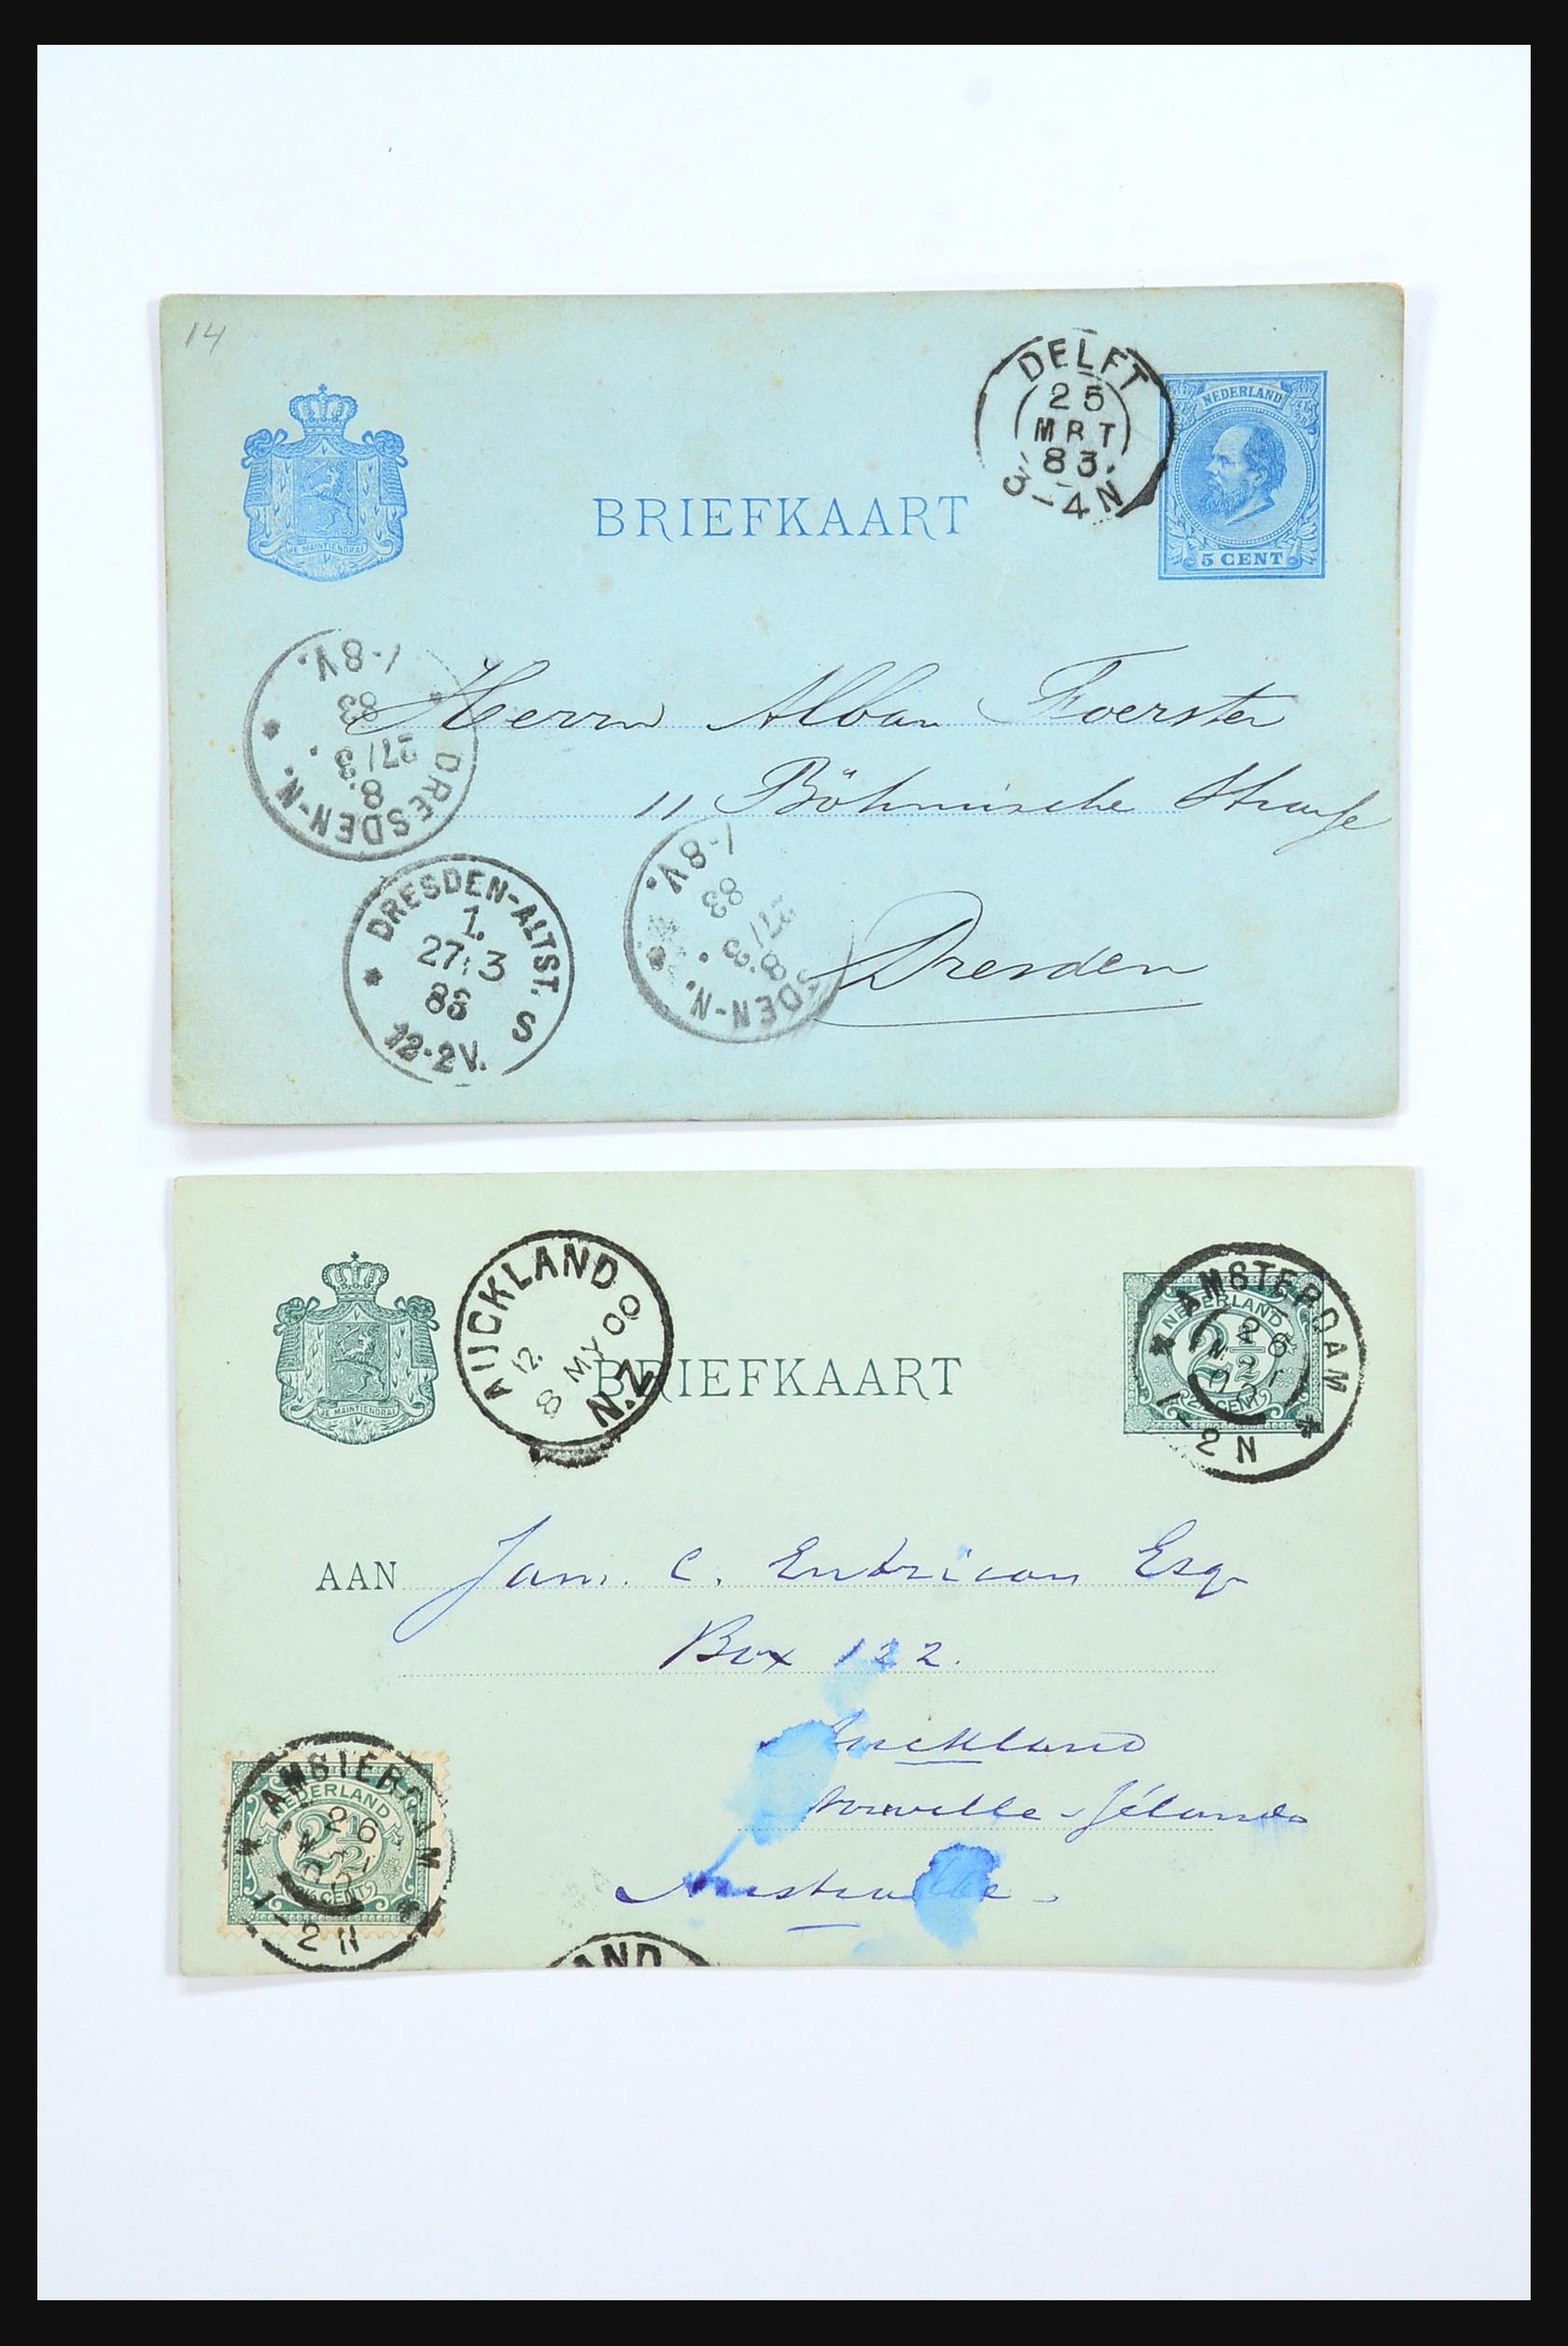 14
DELFT
25
MRT
83
3-4N
NEDERLAND
5 CENT
JE MAINTIENDRAI
BRIEFKAART
Herrn Alban Foerster
11 Böhmische Strasse
Dresden
DRESDEN-N.
8.
27/3
83
7-8V.
DRESDEN-ALTST.
1.
27/3
83
12-2V.
S
DEN-N.
8.
27/3
83
7-8V.
AUCKLAND
12
8 MY 00
N.Z
JE MAINTIENDRAI
BRIEFKAART
AMSTERDAM
26
1-2N
NEDERLAND
2½
CENT
AAN Jam. C. Entrican Esqr
Box 122.
Auckland
Nouvelle-Zélande
Australie
AMSTERDAM
26
1-2N
NEDERLAND
2½
CENT
AND